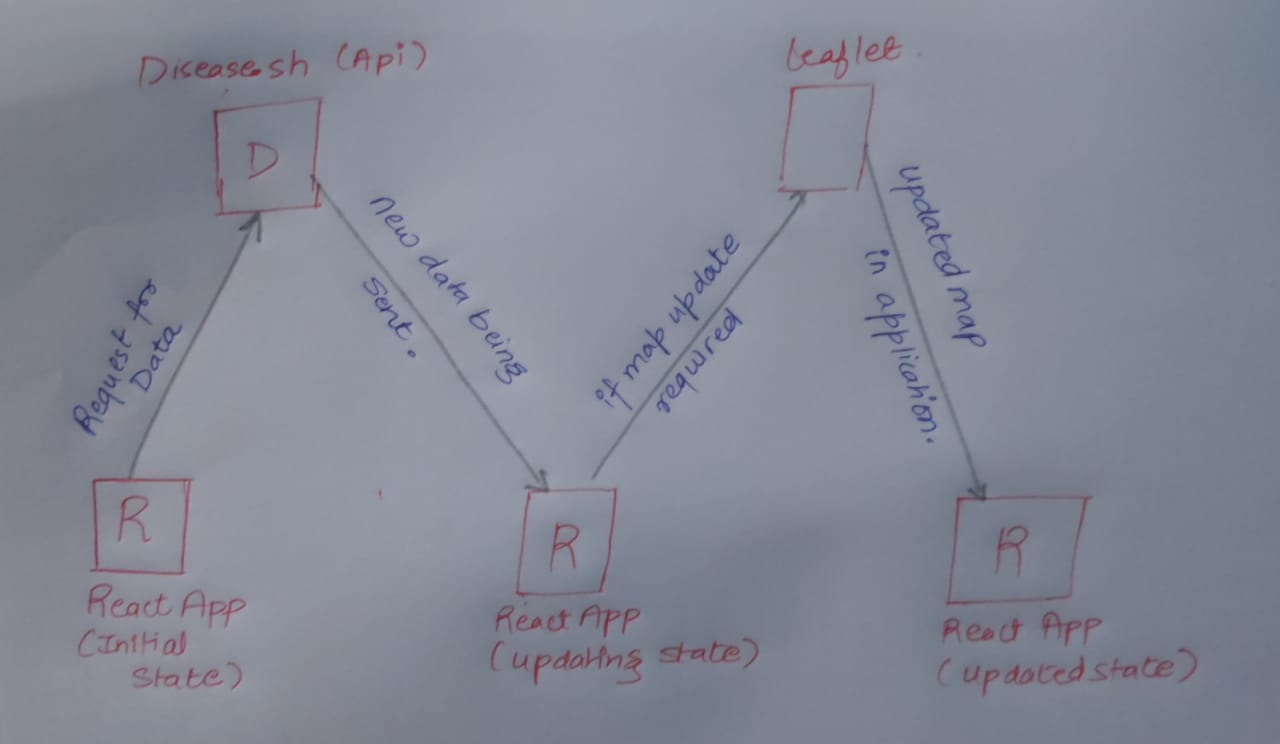 Disease.sh (Api)
Leaflet.
D
Request for
Data
new data being
sent.
if map update
required
updated map
in application.
R
React App
(Initial
State)
R
React App
(updating state)
R
React App
(updated state)